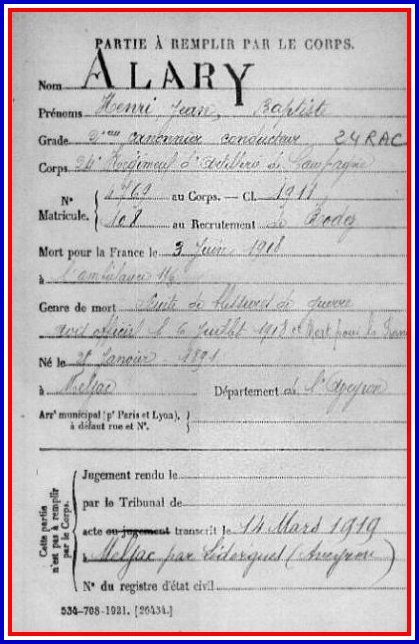 PARTIE À REMPLIR PAR LE CORPS.
Nom ALARY
Prénoms Henri Jean, Baptiste
Grade 2ème canonnier conducteur 24 RAC
Corps 24e Régiment d'Artillerie de Campagne
N° Matricule. { 4769 au Corps. — Cl. 1911
108 au Recrutement de Rodez
Mort pour la France le 3 Juin 1918
à l'ambulance 116
Genre de mort Suite de blessures de guerre
avis officiel 6 Juillet 1918 Mort pour la France
Né le 28 Janvier 1891
à Meljac Département de l'Aveyron
Arrt municipal (pr Paris et Lyon), à défaut rue et N°. }
Cette partie n'est pas à remplir par le Corps. { Jugement rendu le
par le Tribunal de
acte ou jugement transcrit le 14 Mars 1919
à Meljac par Ledergues (Aveyron)
N° du registre d'état civil
534-708-1921. [26434.]